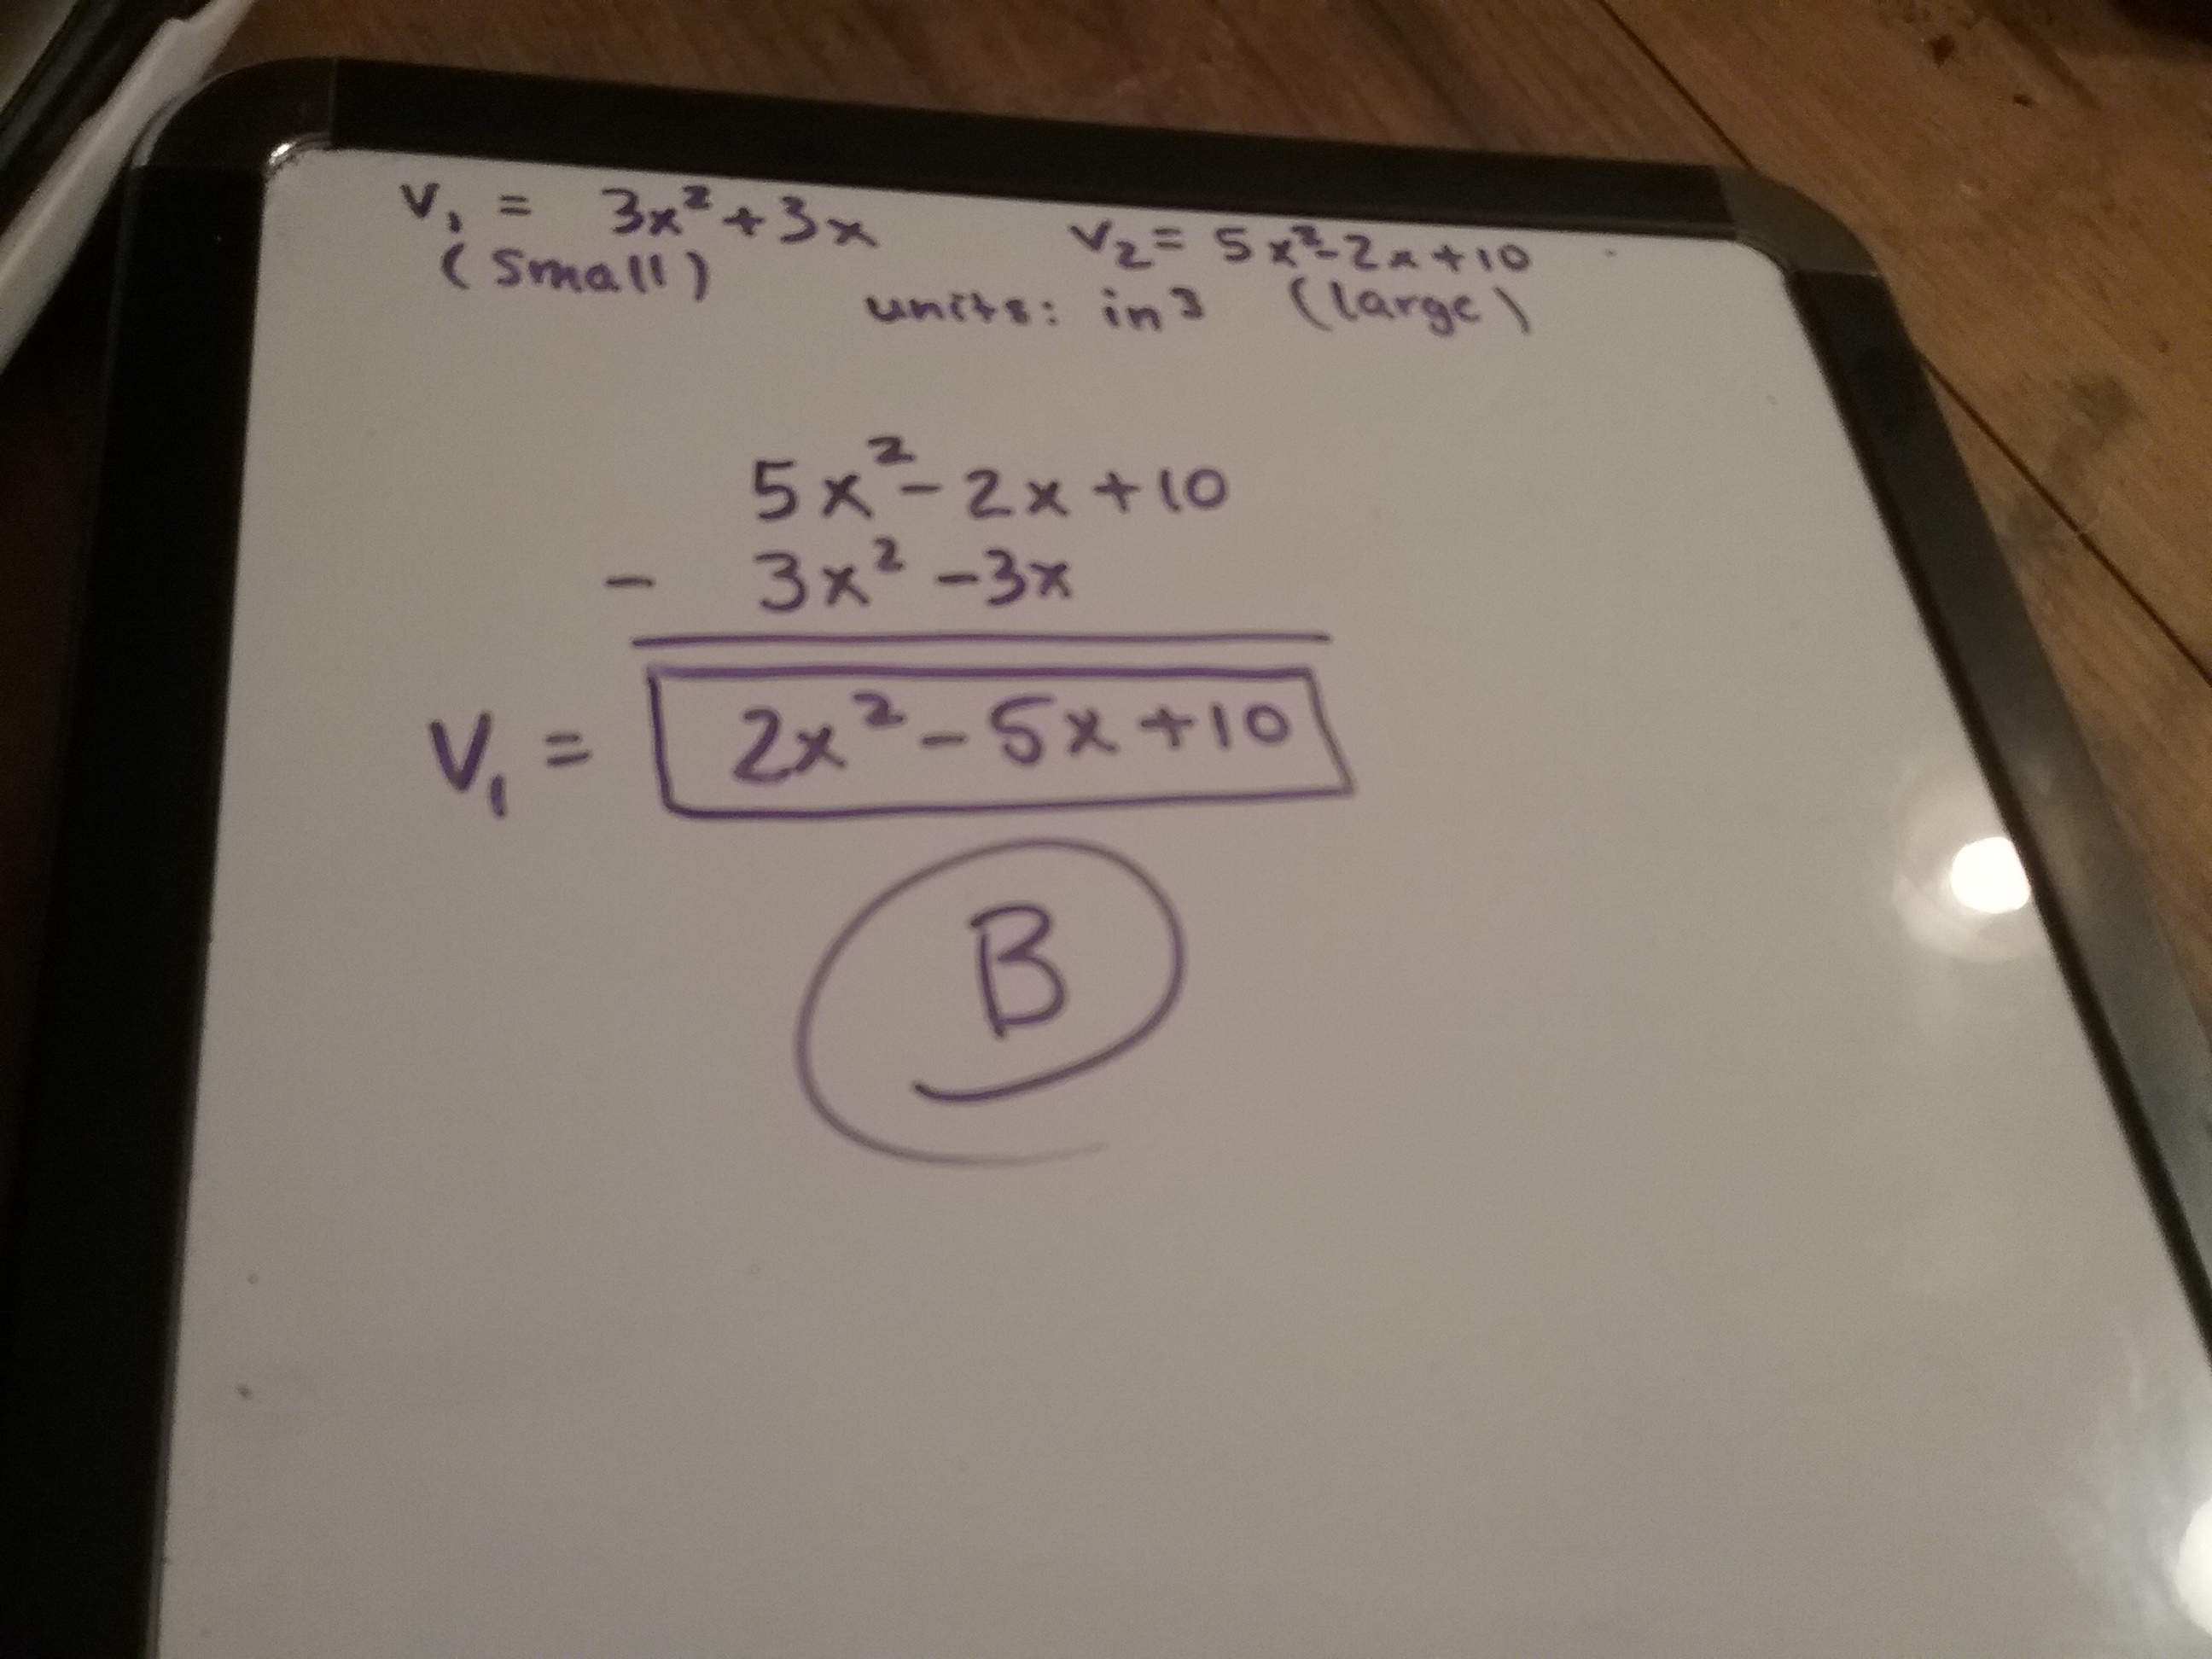 V₁ = 3x² + 3x
(small)
V₂ = 5x² - 2x + 10
(large)
units: in3
5x² - 2x + 10
- 3x² - 3x
V₁ = 2x² - 5x + 10
B